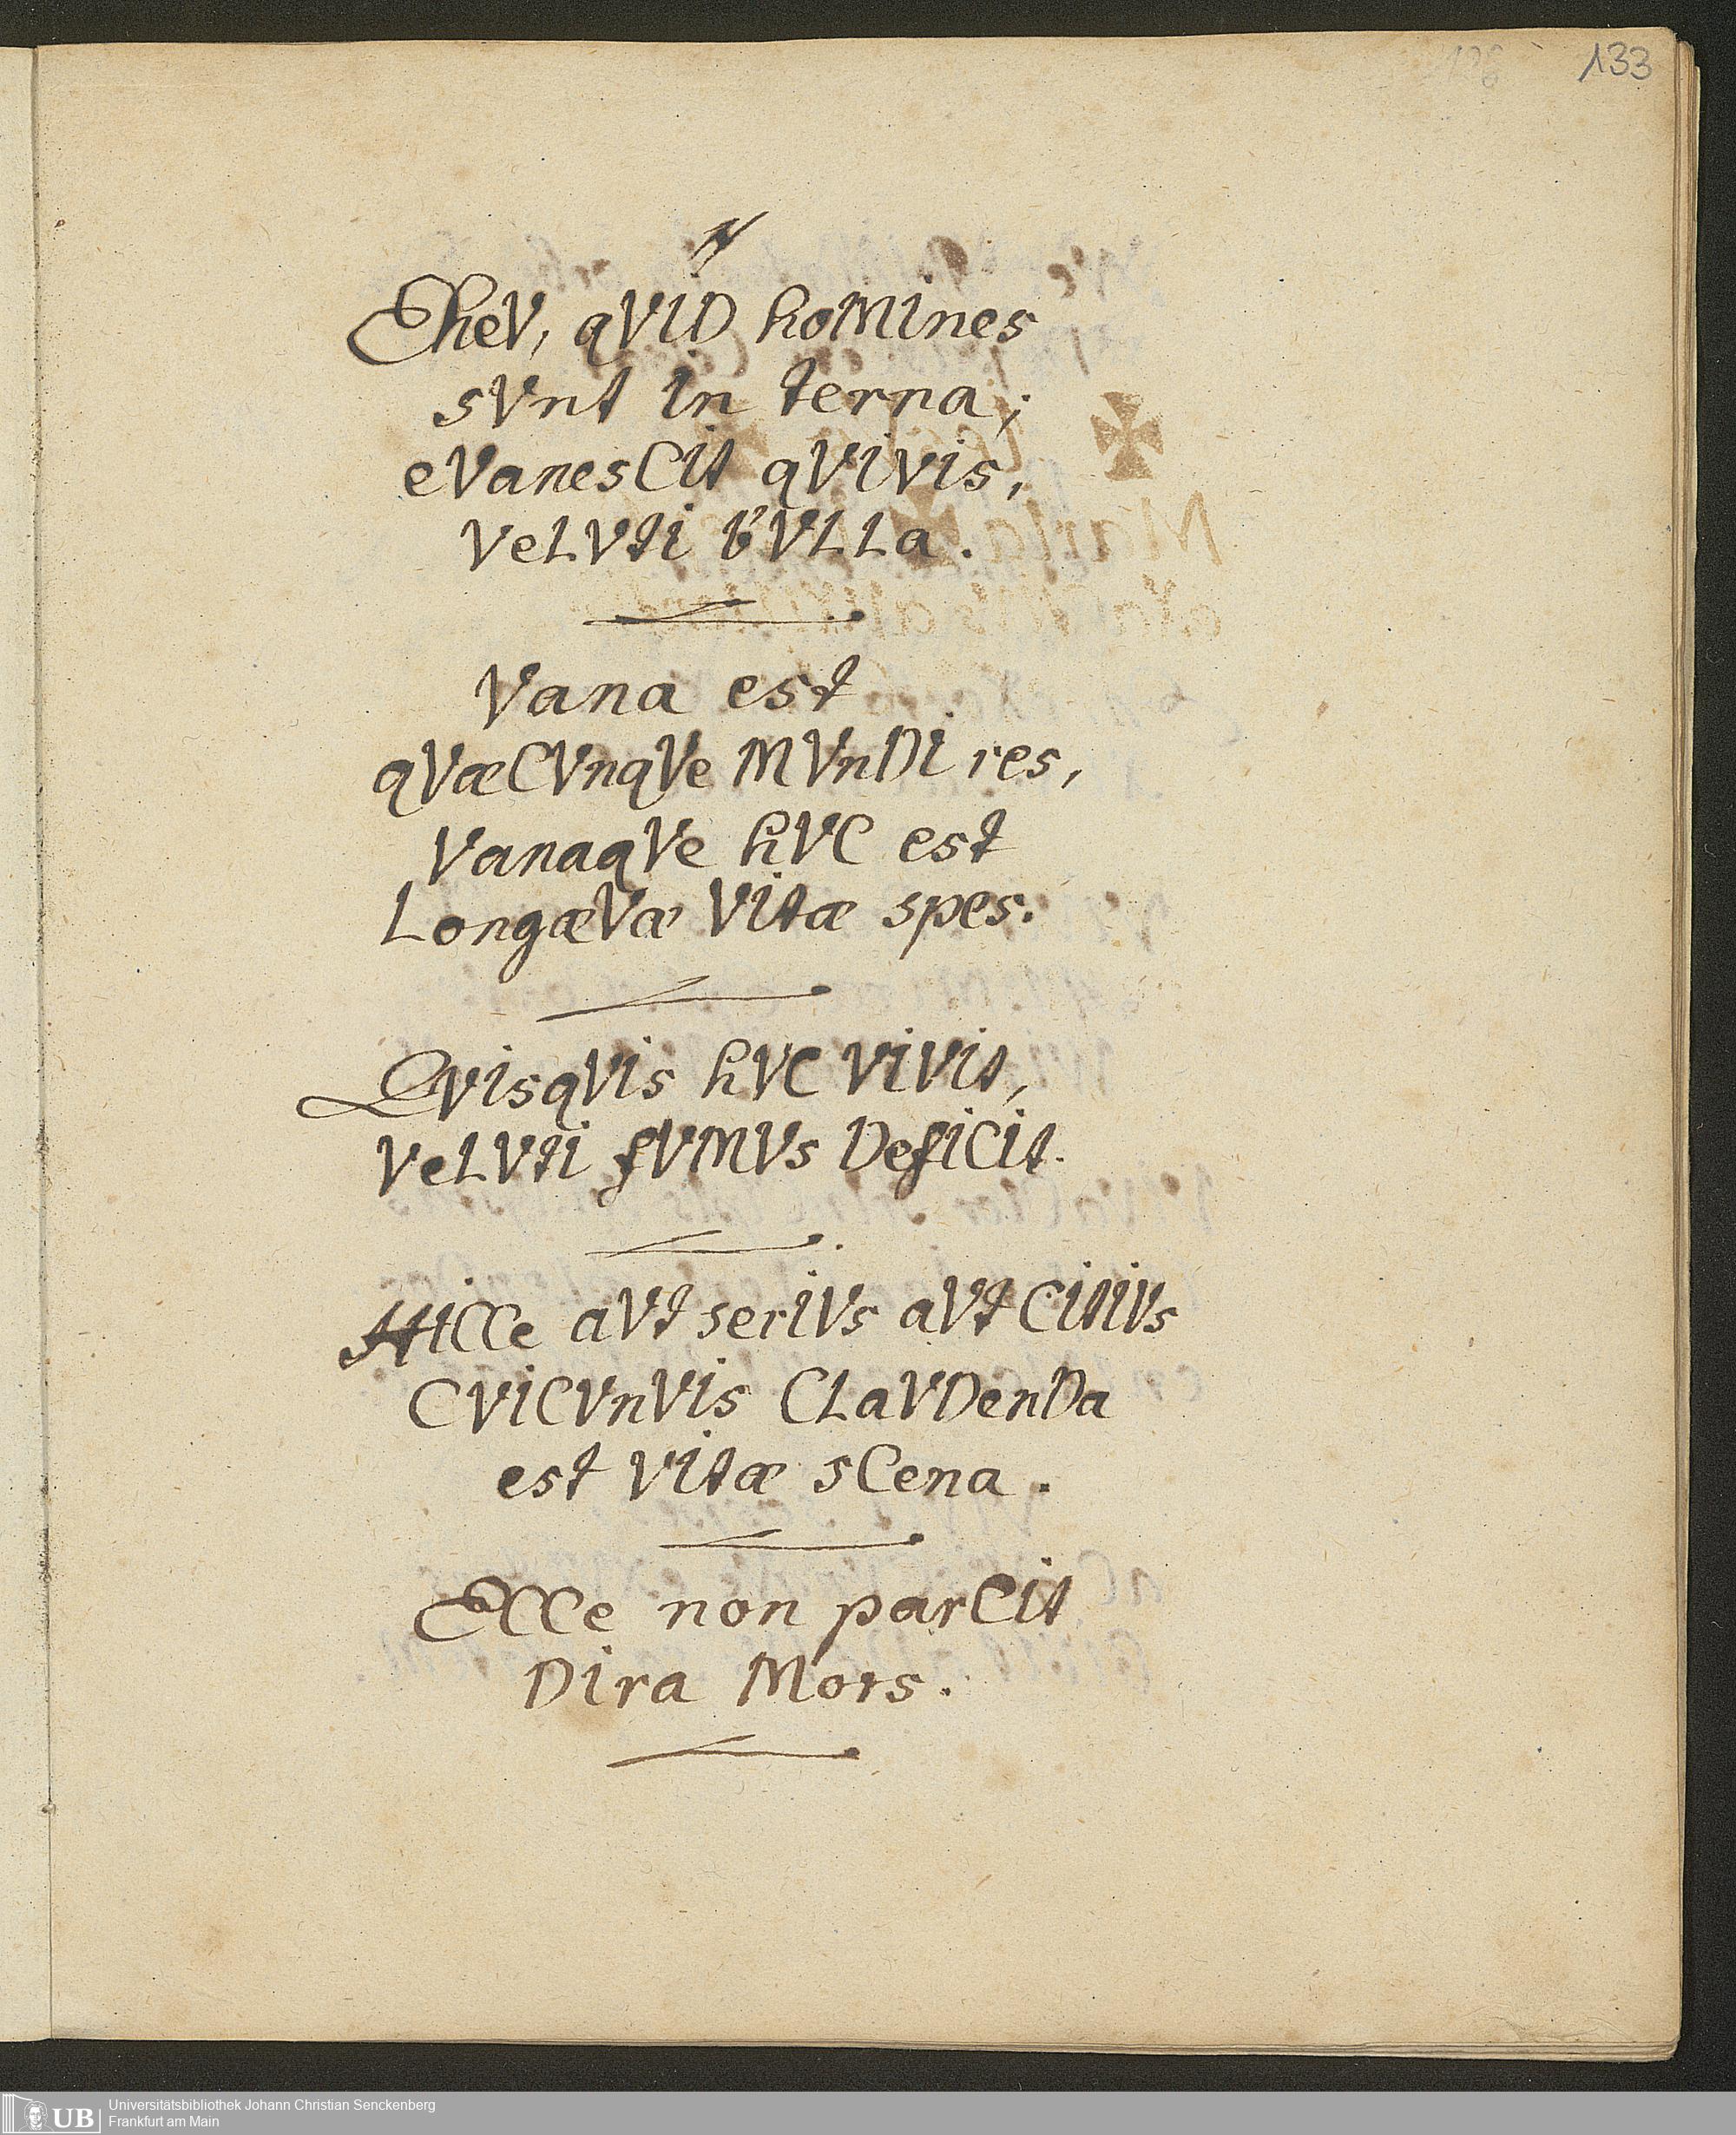 133
EheV, qVID hoMines
sVnt In terna;
eVanesCIt qVIVIs,
VeLVti bVLLa.
Vana est
qVæCVnqVe MVnDI res,
VanaqVe hVC est
LongæVæ VItæ spes.
QVIsqVIs hVC VIVIt,
VeLVtI fVMVs DefICIt.
HICCe aVt serIVs aVt CItIVs
CVICVnVIs CLaVDenDa
est VItæ sCena.
ECCe non parCIt
DIra Mors.
UB
Universitätsbibliothek Johann Christian Senckenberg
Frankfurt am Main